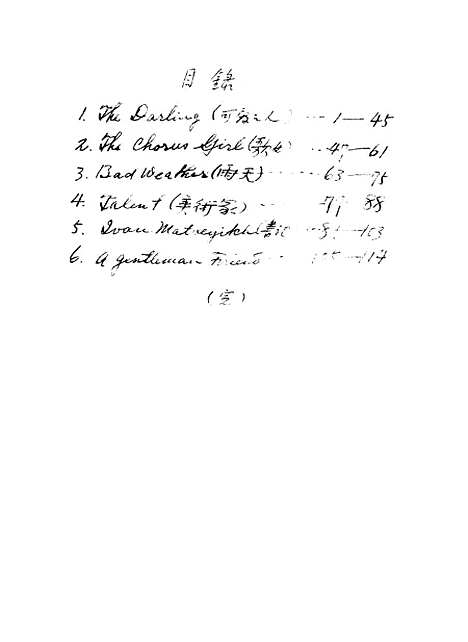 目錄
1. The Darling (可愛之人) ... 1—45
2. The Chorus Girl (歌女) ... 47—61
3. Bad Weather (雨天) ... 63—75
4. Talent (美術家) ... 77 88
5. Ivan Matveyitch (書記 —103
6. A gentleman Friend ... 105—117
(完)